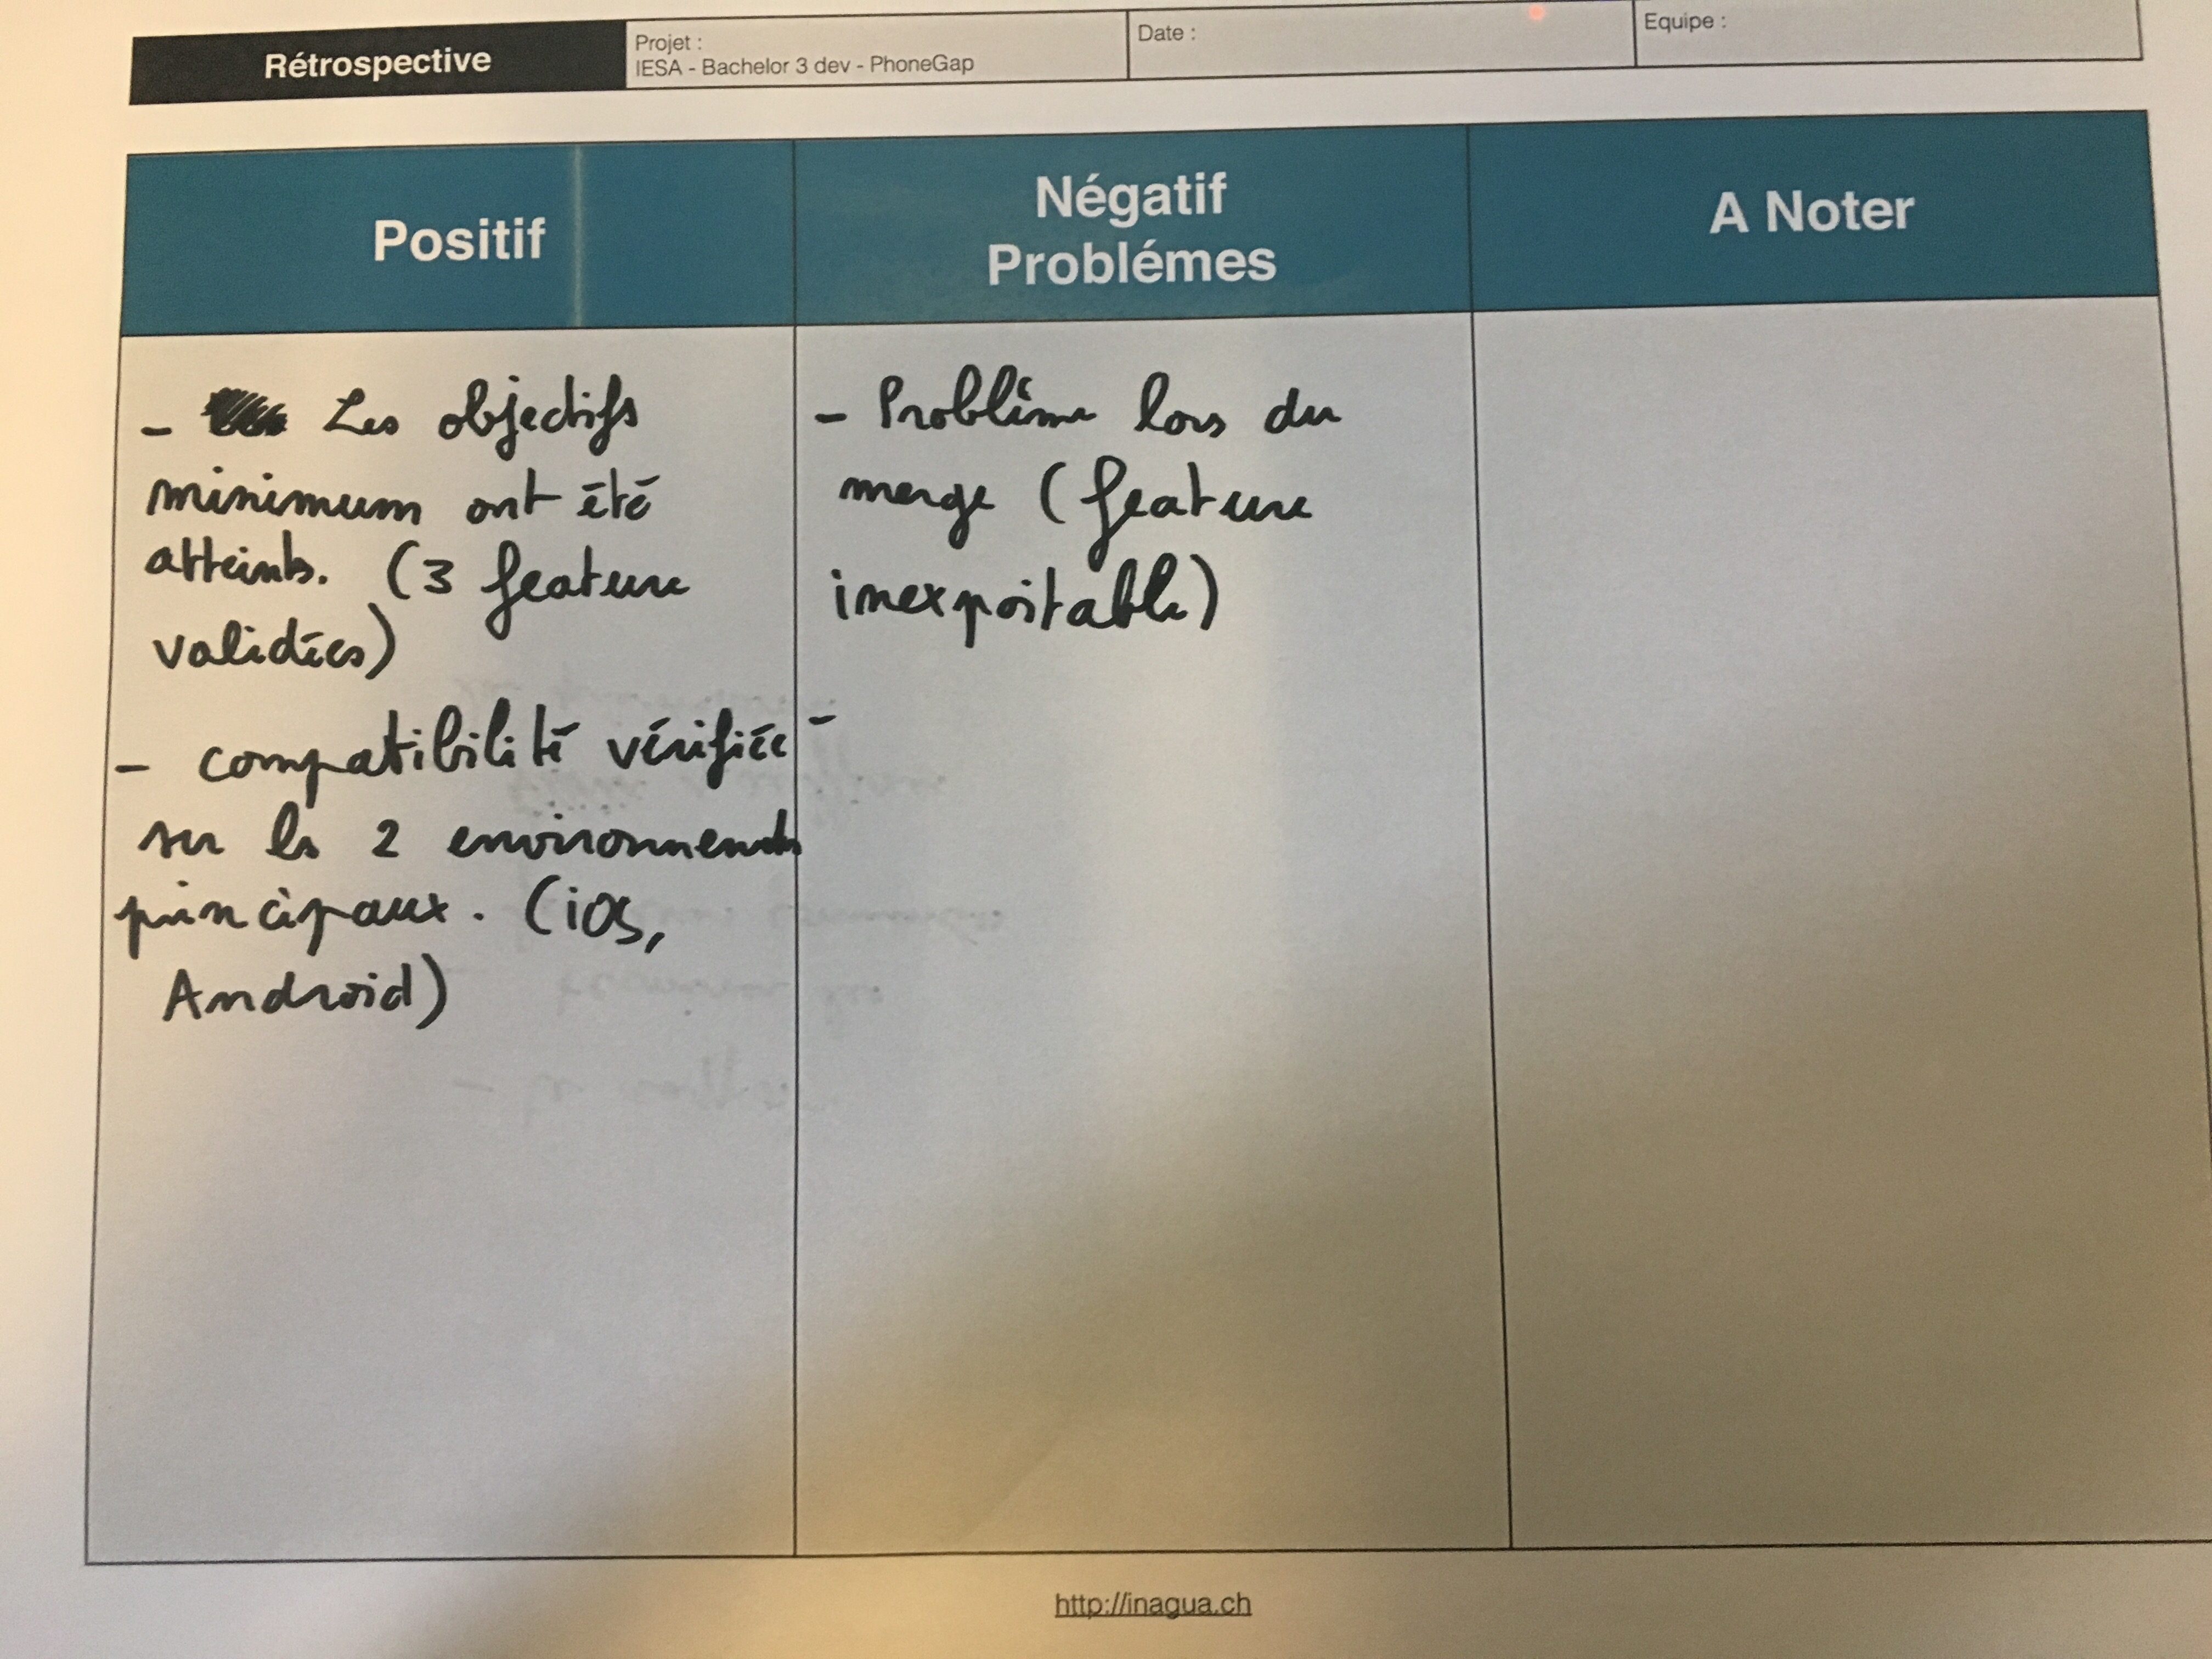 Rétrospective
Projet :
IESA - Bachelor 3 dev - PhoneGap
Date :
Equipe :
Positif
Négatif
Problémes
A Noter
- Les objectifs
minimum ont été
atteints. (3 feature
validées)
- compatibilité vérifiée
sur les 2 environnements
principaux. (iOS,
Android)
- Problème lors du
merge (feature
inexpoitable)
-
http://inagua.ch